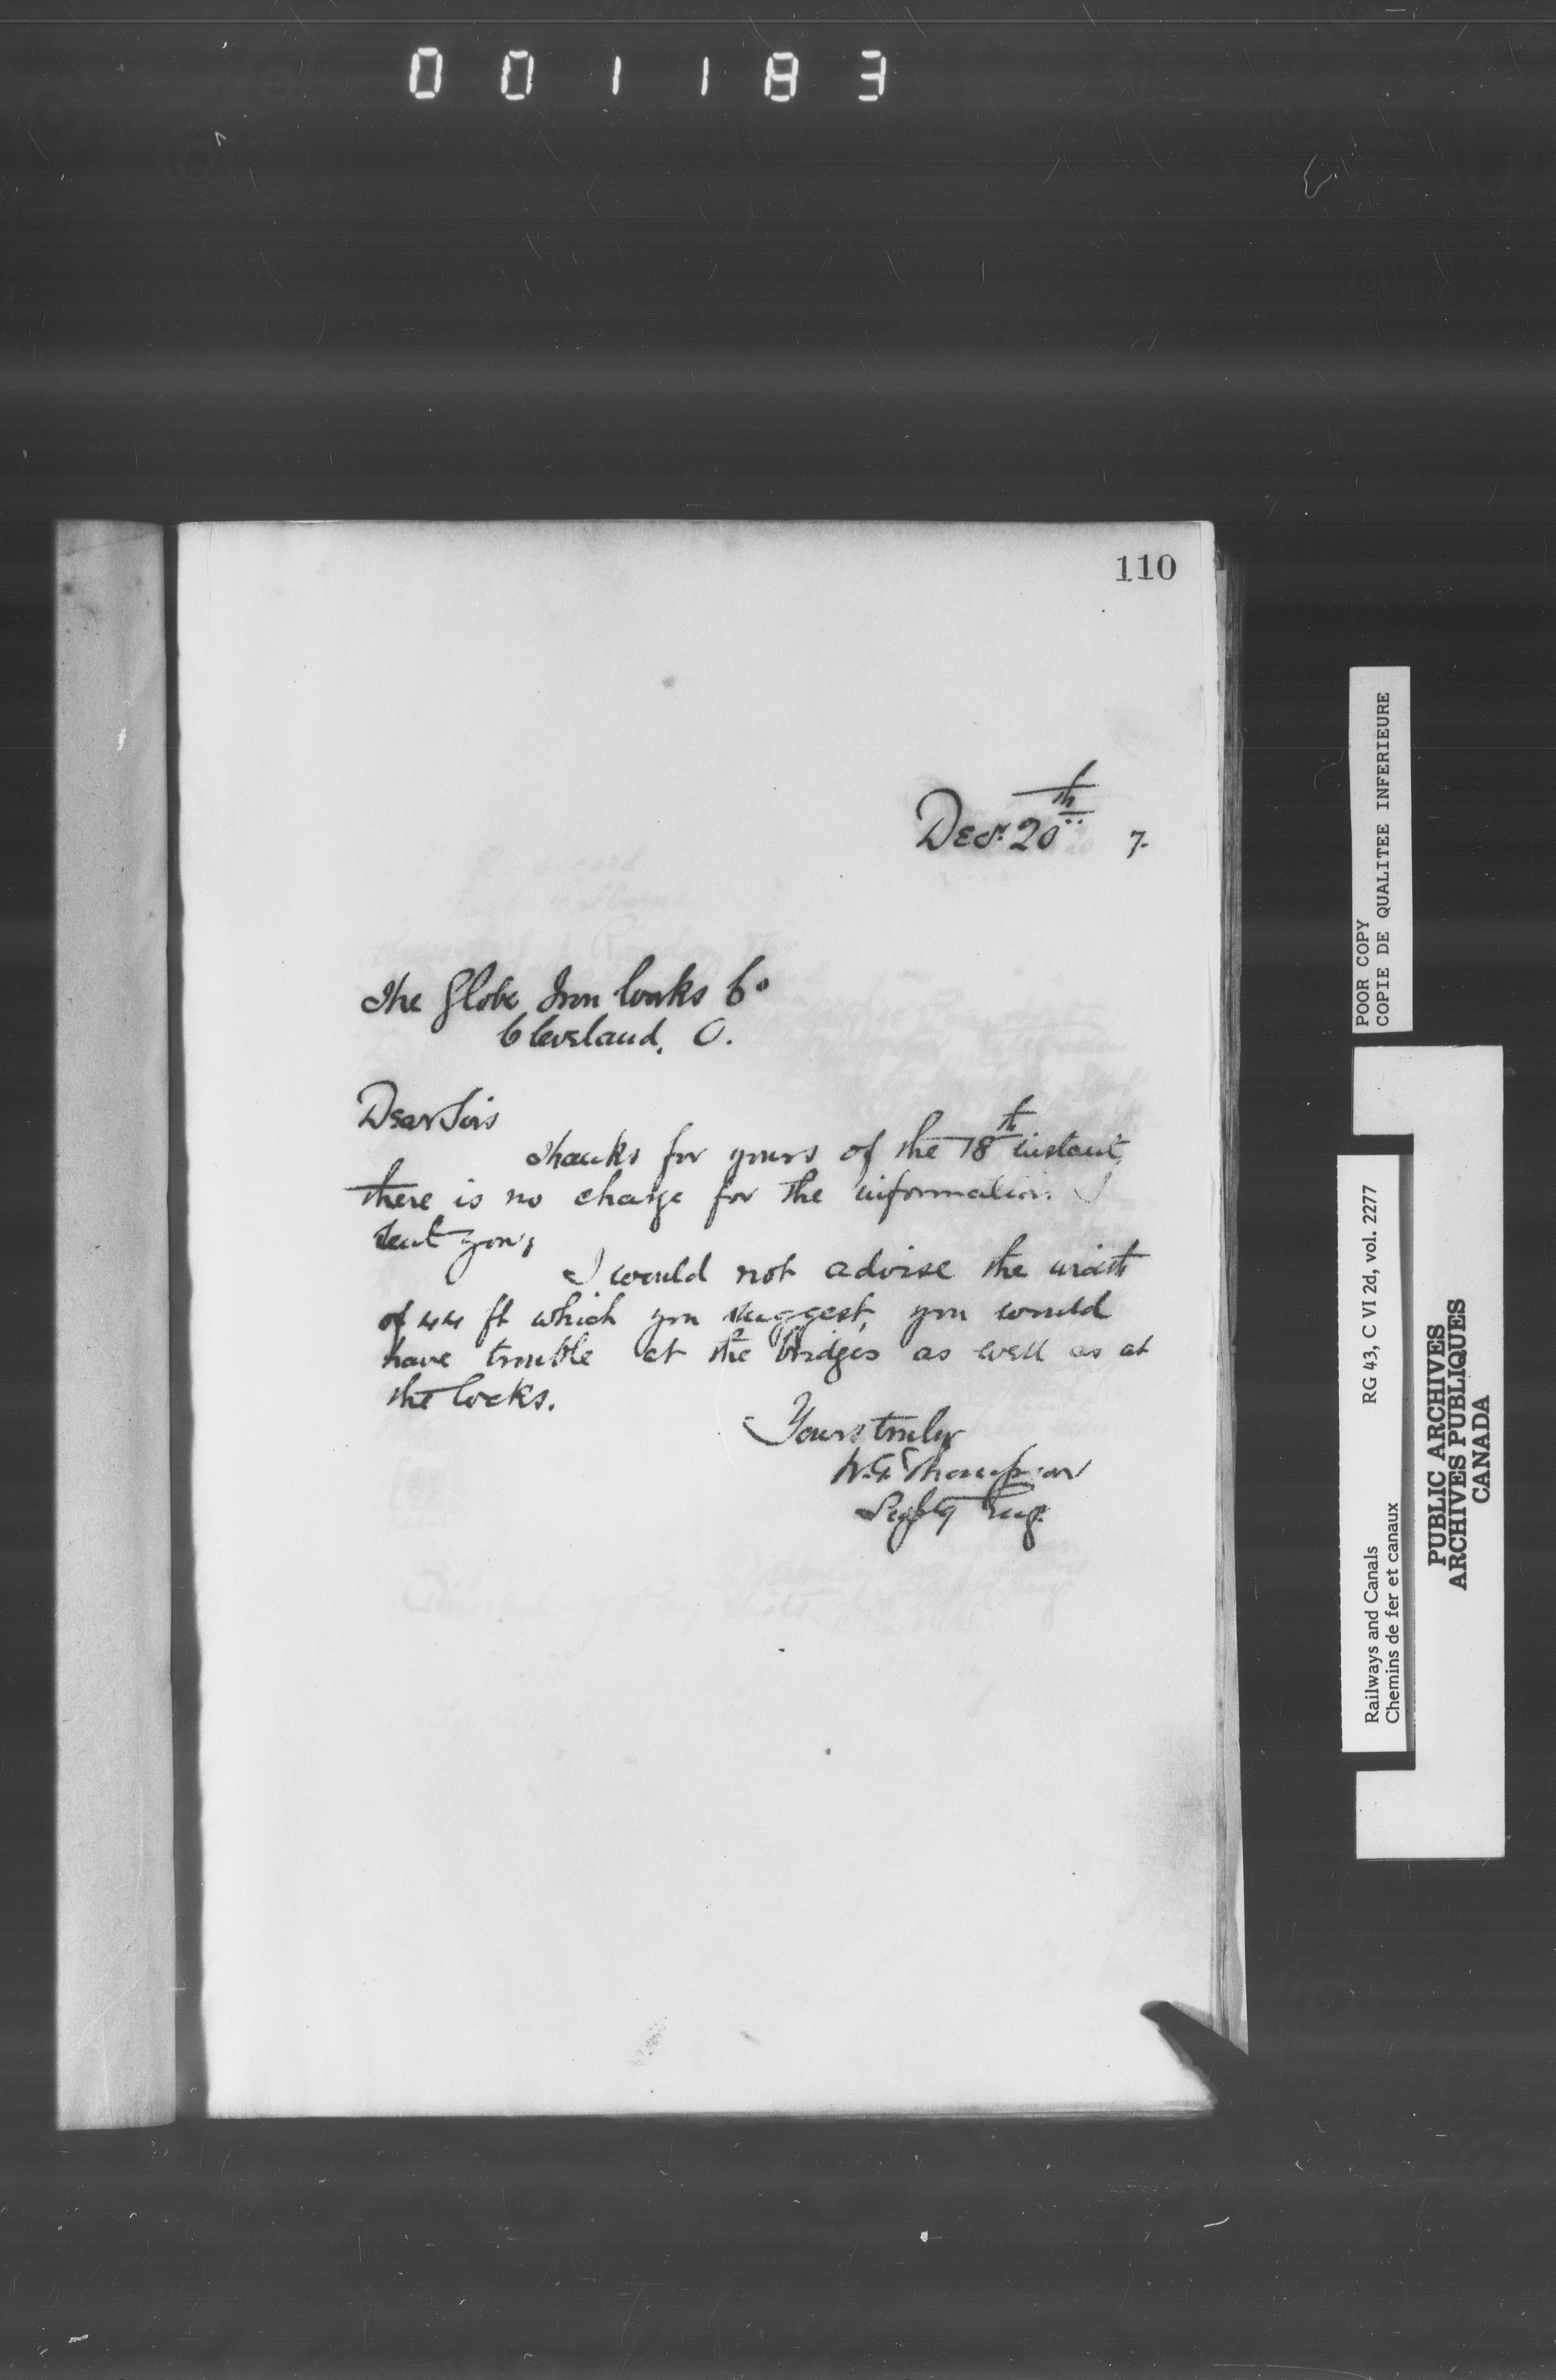 001183
110
Decr. 20th 7.
The Globe Iron Works Co
Cleveland, O.
Dear Sirs
Thanks for yours of the 18th instant,
there is no charge for the information I
sent you,
I would not advise the width
of 44 ft which you suggest, you would
have trouble at the bridges as well as at
the locks.
Yours truly
W.G. Thompson
Supt'g Eng.
POOR COPY
COPIE DE QUALITEE INFERIEURE
Railways and Canals RG 43, C VI 2d, vol. 2277
Chemins de fer et canaux
PUBLIC ARCHIVES
ARCHIVES PUBLIQUES
CANADA